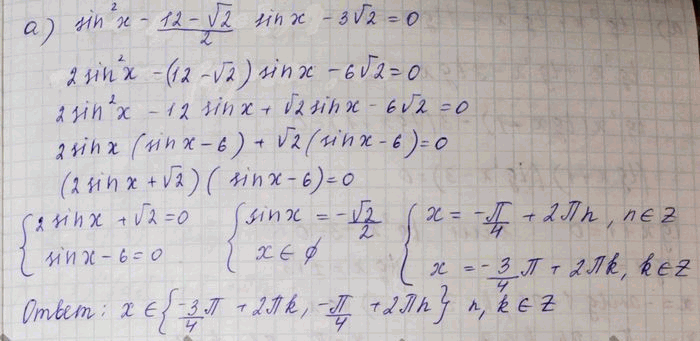 а) sin²x - (12 - √2)/2 sinx - 3√2 = 0
2sin²x - (12 - √2) sinx - 6√2 = 0
2sin²x - 12 sinx + √2 sinx - 6√2 = 0
2sinx (sinx - 6) + √2 (sinx - 6) = 0
(2sinx + √2)( sinx - 6) = 0
{ 2sinx + √2 = 0 { sinx = -√2/2 { x = -π/4 + 2πn, n ∈ Z
sinx - 6 = 0 x ∈ ∅ x = -3/4 π + 2πk, k ∈ Z
Ответ: x ∈ {-3/4 π + 2πk, -π/4 + 2πn} n, k ∈ Z